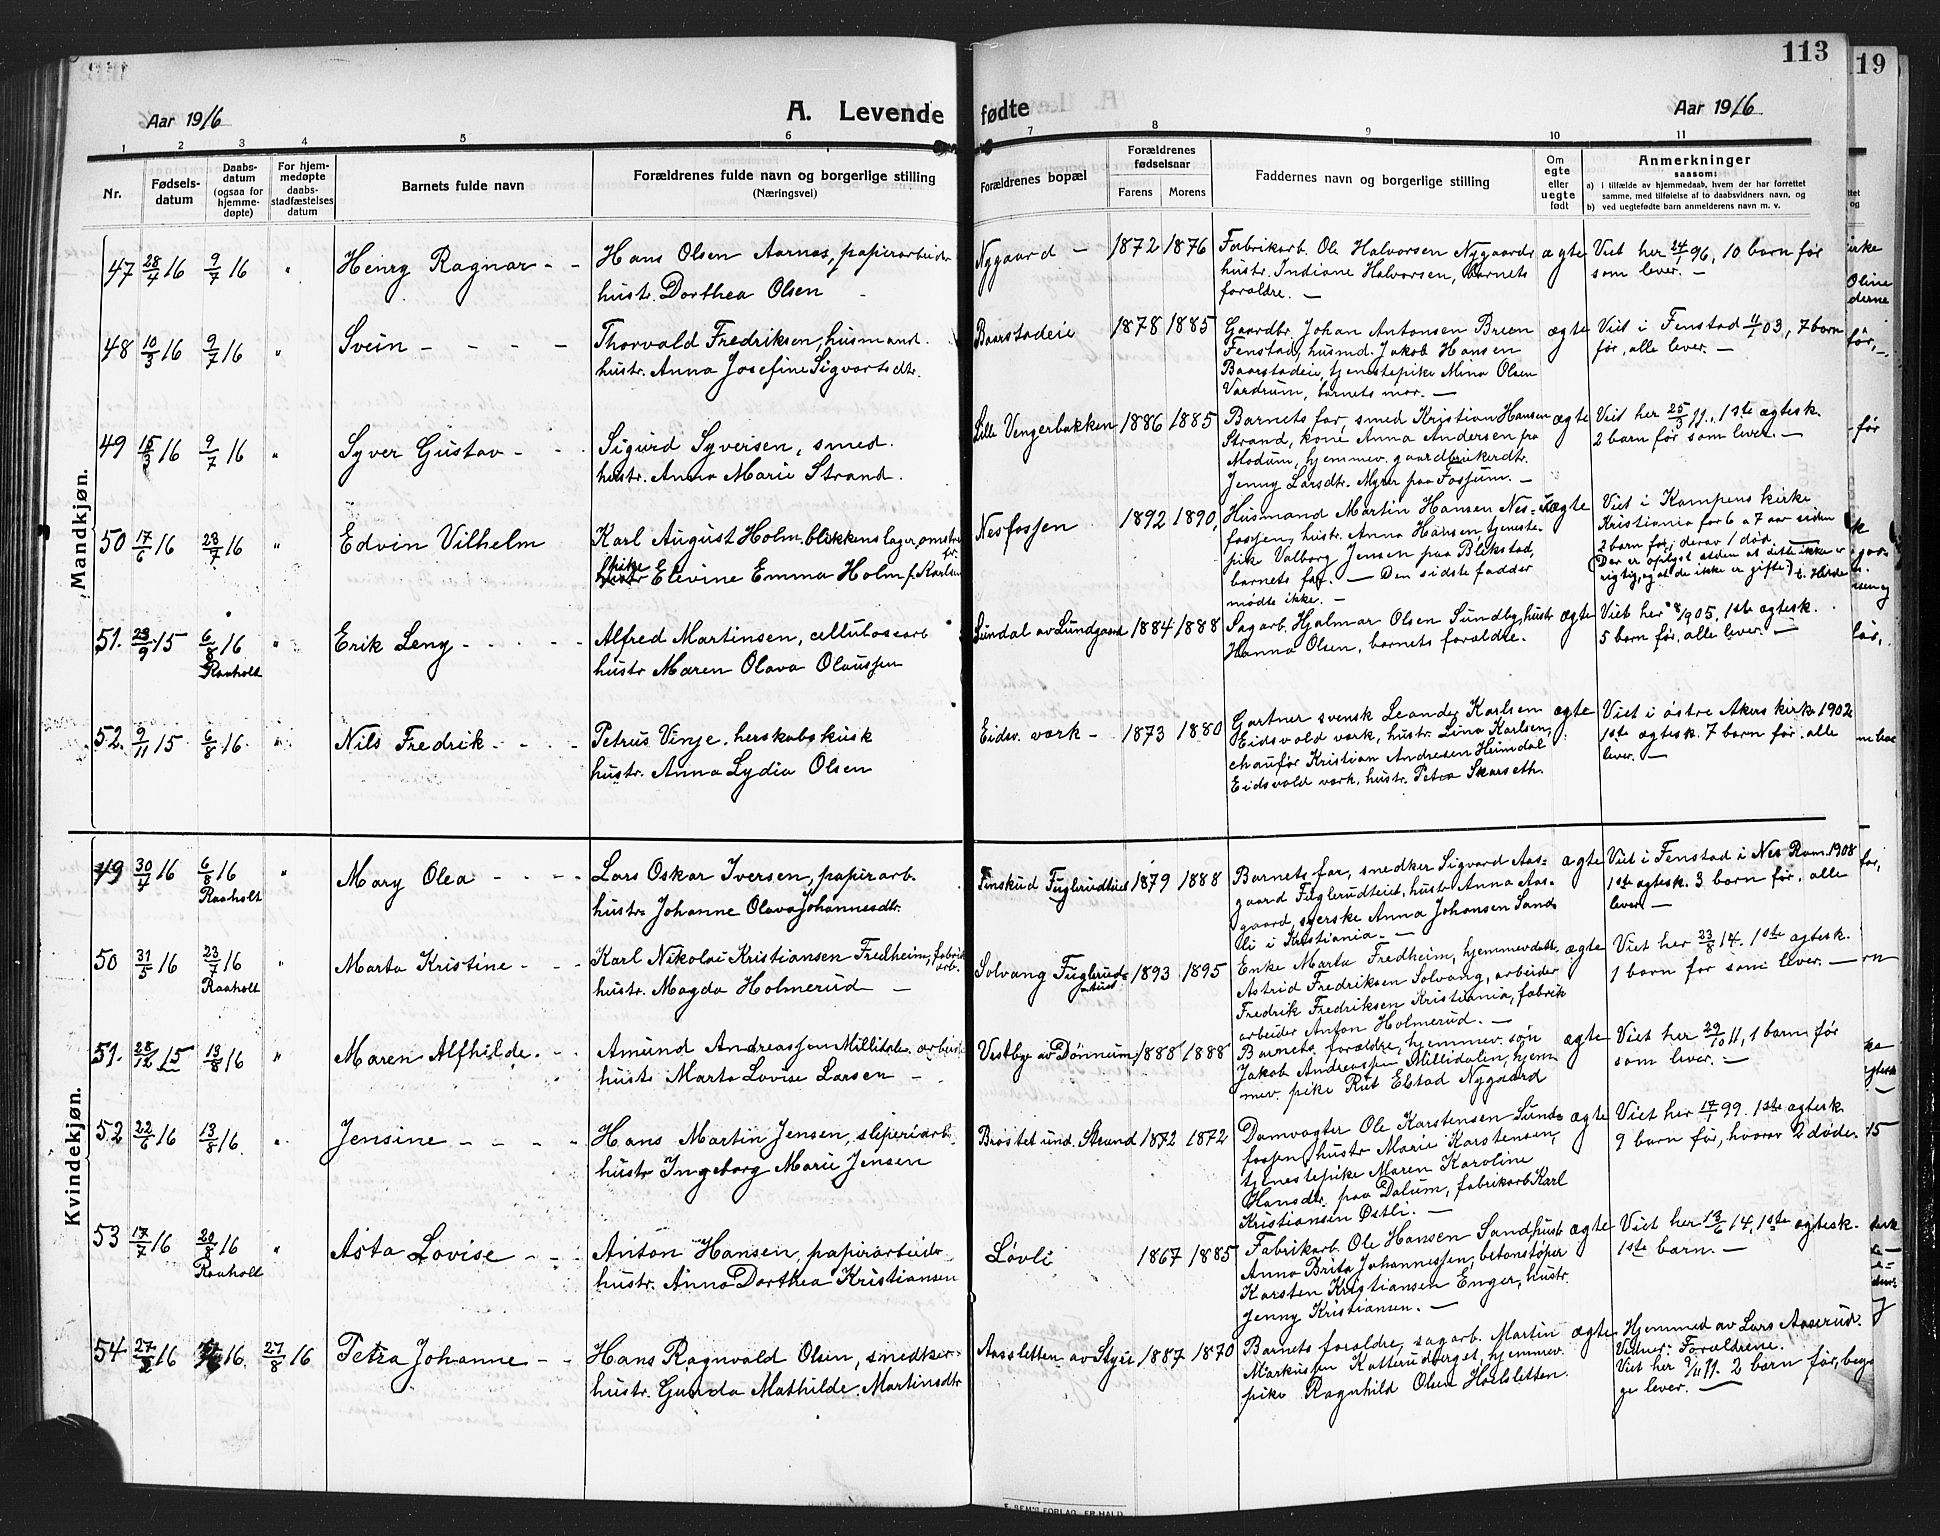 113
19
Aar 1916
A. Levende
fødte
Aar 1916
1 2 3 4 5 6 7 8 9 10 11
Nr.
Fødsels-
datum
Daabs-
datum
(ogsaa for
hjemme-
døpte)
For hjem-
medøpte
daabs-
stadfæstelses
datum
Barnets fulde navn
Forældrenes fulde navn og borgerlige stilling
(Næringsvei)
Forældrenes bopæl
Forældrenes
fødselsaar
Farens Morens
Faddernes navn og borgerlige stilling
Om
egte
eller
uegte
født
Anmerkninger
saasom:
a) i tilfælde av hjemmedaab, hvem der har forrettet
samme, med tilføielse af to daabsvidners navn, og
b) ved uegtefødte barn anmelderens navn m. v.
Mandkjøn.
47 28/4 16 9/7 16 " Henry Ragnar - -
Hans Olsen Aarnes, papirarbeide
hustr. Dorthea Olsen -
Nygaard - 1872 1876
Fabrikarb. Ole Halvorsen Nygaard
hustr. Indiane Halvorsen, barnets
foraldre. -
ægte
Viet her 24/1 96, 10 barn før
som lever. -
48 10/3 16 9/7 16 " Svein - - - -
Thorvald Fredriksen, husmand.
hustr. Anna Josefine Sigvartsdtr.
Baarstadeie 1878 1885
Gaardbr. Johan Antonsen Breen
Fenstad, husmd. Jakob Hansen
Baarstadeie, tjenestepike Mina Olsen
Vardrum, barnets mor. -
ægte
Viet i Fenstad 11/1 03, 7 barn
før, alle lever. -
49 15/3 16 9/7 16 " Syver Gustav - -
Sigurd Syversen, smed.
hustr. Anna Marie Strand.
Lille Vengerbakken 1886 1885
Barnets far, smed Kristian Hansen
Strand, kone Anna Andersen fra
Modum, hjemmev. gaardbrukerdtr.
Jenny Larsdtr. Myrer paa Fosjum. -
ægte
Viet her 25/3 11. 1ste ægtesk.
2 barn før som lever. -
50 17/6 16 23/7 16 " Edvin Vilhelm
Karl August Holm. blikkenslager, omstr
pike Elevine Emma Holm f. Karlsen
Nesfossen 1892 1890,
Husmand Martin Hansen Nes-
fossen, hustr. Anna Hansen, tjeneste-
pike Valborg Jensen paa Blekstad,
barnets far. - Den sidste fadder
mødte ikke. -
uægte
Viet i Kampens kirke
Kristiania for 6 a 7 aar siden
2 barn før, derav 1 død.
(Der er oplyst siden at dette ikke er
rigtig, og at de ikke er gifte)
51. 23/9 15 6/8 16 " Erik Leny - - - -
Raaholt
Alfred Martinsen, cellulosearb
hustr Maren Olava Olaussen
Sundal av Lundgaard 1884 1888
Sagarb. Hjalmar Olsen Sundby, hustr
Hanna Olsen, barnets foraldre.
ægte
Viet her 8/1 905, 1ste ægtesk.
5 barn før, alle lever. -
52. 9/11 15 6/8 16 " Nils Fredrik - - -
Petrus Vinje. herskabskusk
hustr. Anna Lydia Olsen
Eidsv. værk - 1873 1880
Gartner svensk Leander Karlsen
Eidsvold værk, hustr. Lina Karlsen,
chaufør Kristian Andresen Heimdal
Eidsvold værk, hustr. Petra Skarseth.
ægte
Viet i østre Akers kirke 1902
1ste ægtesk. 7 barn før. alle
lever. -
Kvindekjøn.
49 30/4 16 6/8 16 " Mary Olea - - - -
Raaholt
Lars Oskar Iversen, papirarb.
hustr. Johanne Olava Johannesdtr.
Finskud Fuglerudteiet 1879 1888
Barnets far, snedker Sigvard Aas-
gaard Fuglerudteiet, hustr. Anna Aas-
gaard, syerske Anna Johansen Sand
li i Kristiania. -
ægte
Viet i Fenstad i Nes Rom. 1908
1ste ægtesk. 3 barn før, alle
lever. -
50 31/5 16 23/7 16 " Marta Kristine - - -
Raaholt
Karl Nikolai Kristiansen Fredheim, fabrik
arb.
hustr. Magda Holmerud -
Solvang Fuglerud- 1893 1895
Enke Marta Fredheim, hjemmev. dtt.
Astrid Fredriksen Solvang, arbeider
Fredrik Fredriksen Kristiania, fabrik
arbeider Anton Holmerud. -
ægte
Viet her 23/8 14. 1ste ægtesk.
1 barn før som lever. -
51. 28/12 15 13/8 16 " Maren Alfhilde. - -
Amund Andreassen Millidale arbeid
hustr Marta Lovise Larsen -
Vestby av Dønnum, 1888 1888
Barnets foraldre, hjemmev. søn
Jakob Andreassen Millidalen, hjem
mev. pike Rut Elstad Nygaard
ægte
Viet her 29/10 11, 1 barn før
som lever. -
52 22/6 16 13/8 16 " Jensine - - - -
Hans Martin Jensen, sliperiarb.
hustr Ingeborg Marie Jensen
Brøstet und. Strand 1872 1872
Damvogter Ole Karstensen Sund-
fossen, hustr Marie Karstensen,
tjenestepike Maren Karoline
Hansdtr. paa Dalum, fabrikarb Karl
Kristiansen Østli. -
ægte
Viet her 17/1 99. 1ste ægtesk
9 barn før, hvorav 2 døde.
53 17/7 16 20/8 16 " Asta Lovise - - -
Raaholt
Anton Hansen, papirarbeide
hustr. Anna Dorthea Kristiansen
Løvli 1867 1885
Fabrikarb. Ole Hansen Sand, hustr
Anna Brita Johannessen, betonstøper
Karsten Kristiansen Enger, hustr.
Jenny Kristiansen. -
ægte
Viet her 13/6 14, 1ste ægtesk.
1ste barn. -
54 27/2 16 16 27/8 16 Petra Johanne - -
Hans Ragnvald Olsen, snedker-
hustr. Gunda Mathilde Martinsdtr
Aassletten av Styri 1887 1870
Barnets foraldre, sagarb. Martin
Markussen Katterudberget, hjemmev.
pike Ragnhild Olsen Hœlsletten.
ægte
Hjemmed av Lars Aaserud.
Vidner: Foraldrene.
Viet her 9/11 11. 2 barn før, beg
ge lever. -